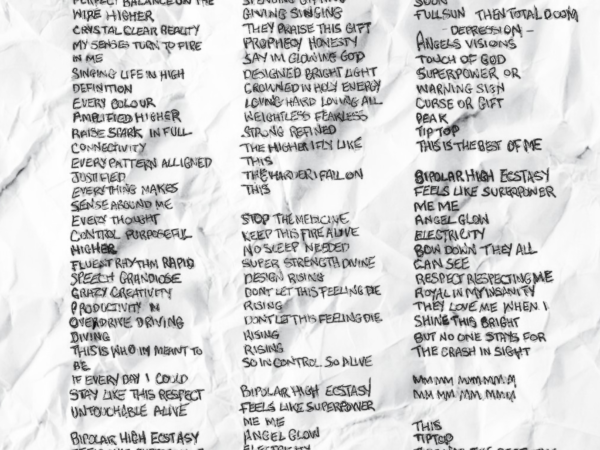 PERFECT BALANCE ON THE
WIRE HIGHER
CRYSTAL CLEAR REALITY
MY SENSES TURN TO FIRE
IN ME
SINGING LIFE IN HIGH
DEFINITION
EVERY COLOUR
AMPLIFIED HIGHER
RAISE SPARK IN FULL
CONNECTIVITY
EVERY PATTERN ALLIGNED
JUSTIFIED
EVERYTHING MAKES
SENSE AROUND ME
EVERY THOUGHT
CONTROL PURPOSEFUL
HIGHER
FLUENT RHYTHM RAPID
SPEECH GRANDIOSE
CRAZY CREATIVITY
PRODUCTIVITY IN
OVERDRIVE DRIVING
DIVING
THIS IS WHO IM MEANT TO
BE
IF EVERY DAY I COULD
STAY LIKE THIS RESPECT
UNTOUCHABLE ALIVE
BIPOLAR HIGH ECSTASY
GIVING SINGING
THEY PRAISE THIS GIFT
PROPHECY HONESTY
SAY IM GLOWING GOD
DESIGNED BRIGHT LIGHT
CROWNED IN HOLY ENERGY
LOVING HARD LOVING ALL
WEIGHTLESS FEARLESS
STRONG REFINED
THE HIGHER I FLY LIKE
THIS
THE HARDER I FALL ON
THIS
STOP THE MEDICINE
KEEP THIS FIRE ALIVE
NO SLEEP NEEDED
SUPER STRENGTH DIVINE
DESIGN RISING
DONT LET THIS FEELING DIE
RISING
DONT LET THIS FEELING DIE
RISING
RISING
SO IN CONTROL SO ALIVE
BIPOLAR HIGH ECSTASY
FEELS LIKE SUPERPOWER
ME ME
ANGEL GLOW
ELECTRICITY
SOON
FULL SUN THEN TOTAL DOOM
- DEPRESSION -
ANGELS VISIONS
TOUCH OF GOD
SUPERPOWER OR
WARNING SIGN
CURSE OR GIFT
PEAK
TIP TOP
THIS IS THE BEST OF ME
BIPOLAR HIGH ECSTASY
FEELS LIKE SUPERPOWER
ME ME
ANGEL GLOW
ELECTRICITY
BOW DOWN THEY ALL
CAN SEE
RESPECT RESPECTING ME
ROYAL IN MY INSANITY
THEY LOVE ME WHEN I
SHINE THIS BRIGHT
BUT NO ONE STAYS FOR
THE CRASH IN SIGHT
MM MM MMMM M
MM MM MM MMM
THIS
TIPTOP